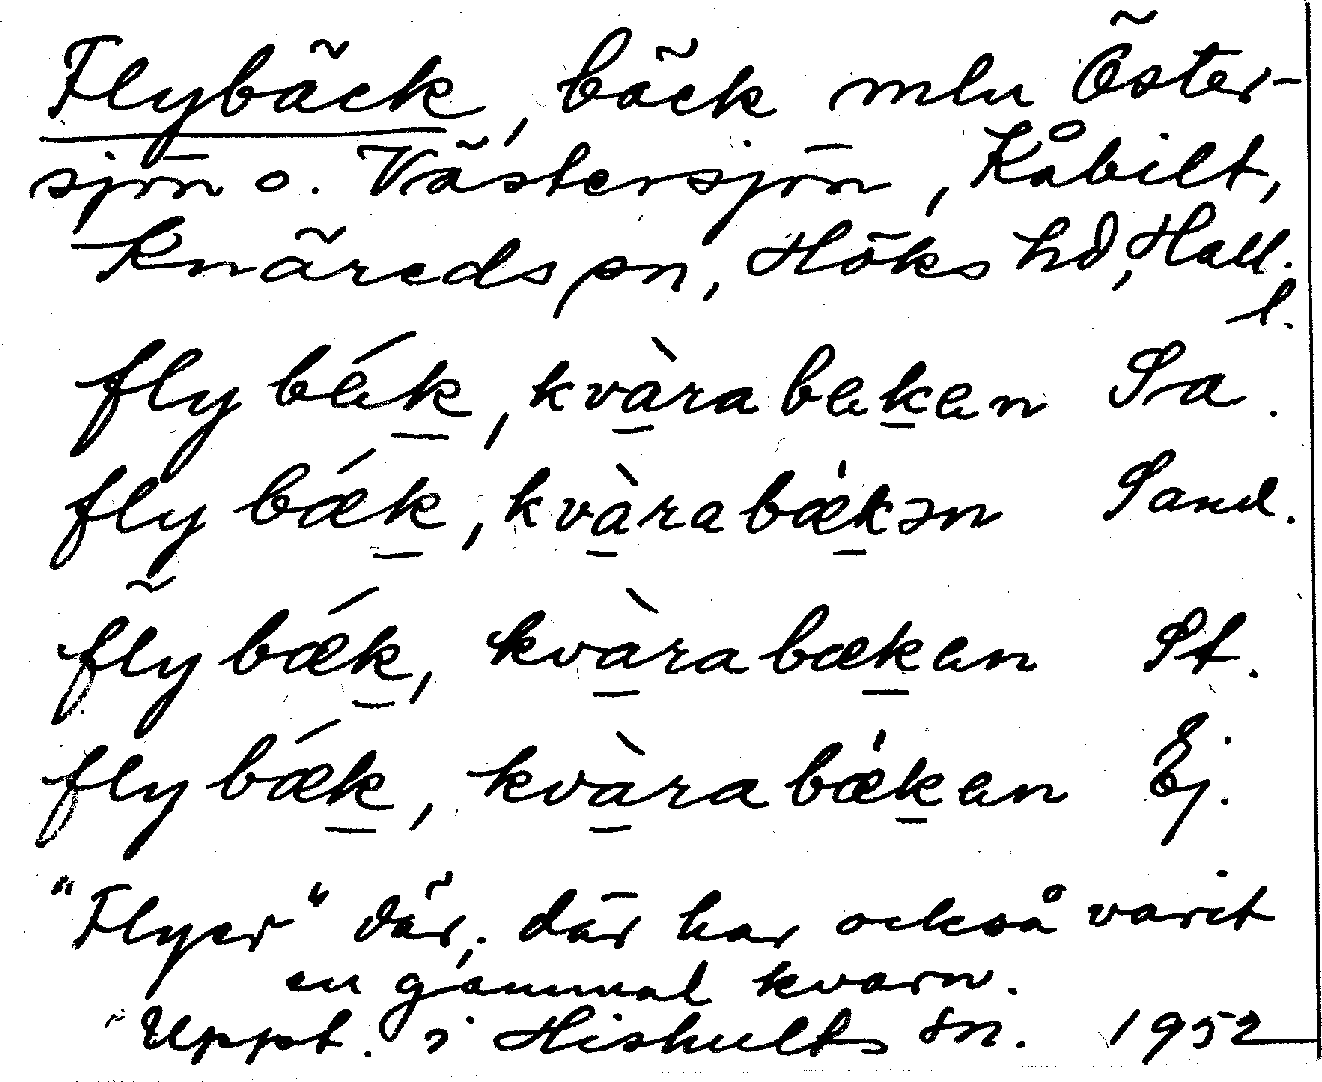 Flybäck, bäck mln Öster-
sjön o. Västersjön, Kåbilt,
Knäreds sn, Höks hd, Hall.
l.
flybǽk, kvàrabækæn Sa.
flybǽk, kvàrabǽkən Sand.
flybǽk, kvàrabækæn St.
flybǽk, kvàrabǽkæn Ej.
"Flyer" där; där har också varit
en gammal kvarn.
Uppt. i Hishults sn. 1952